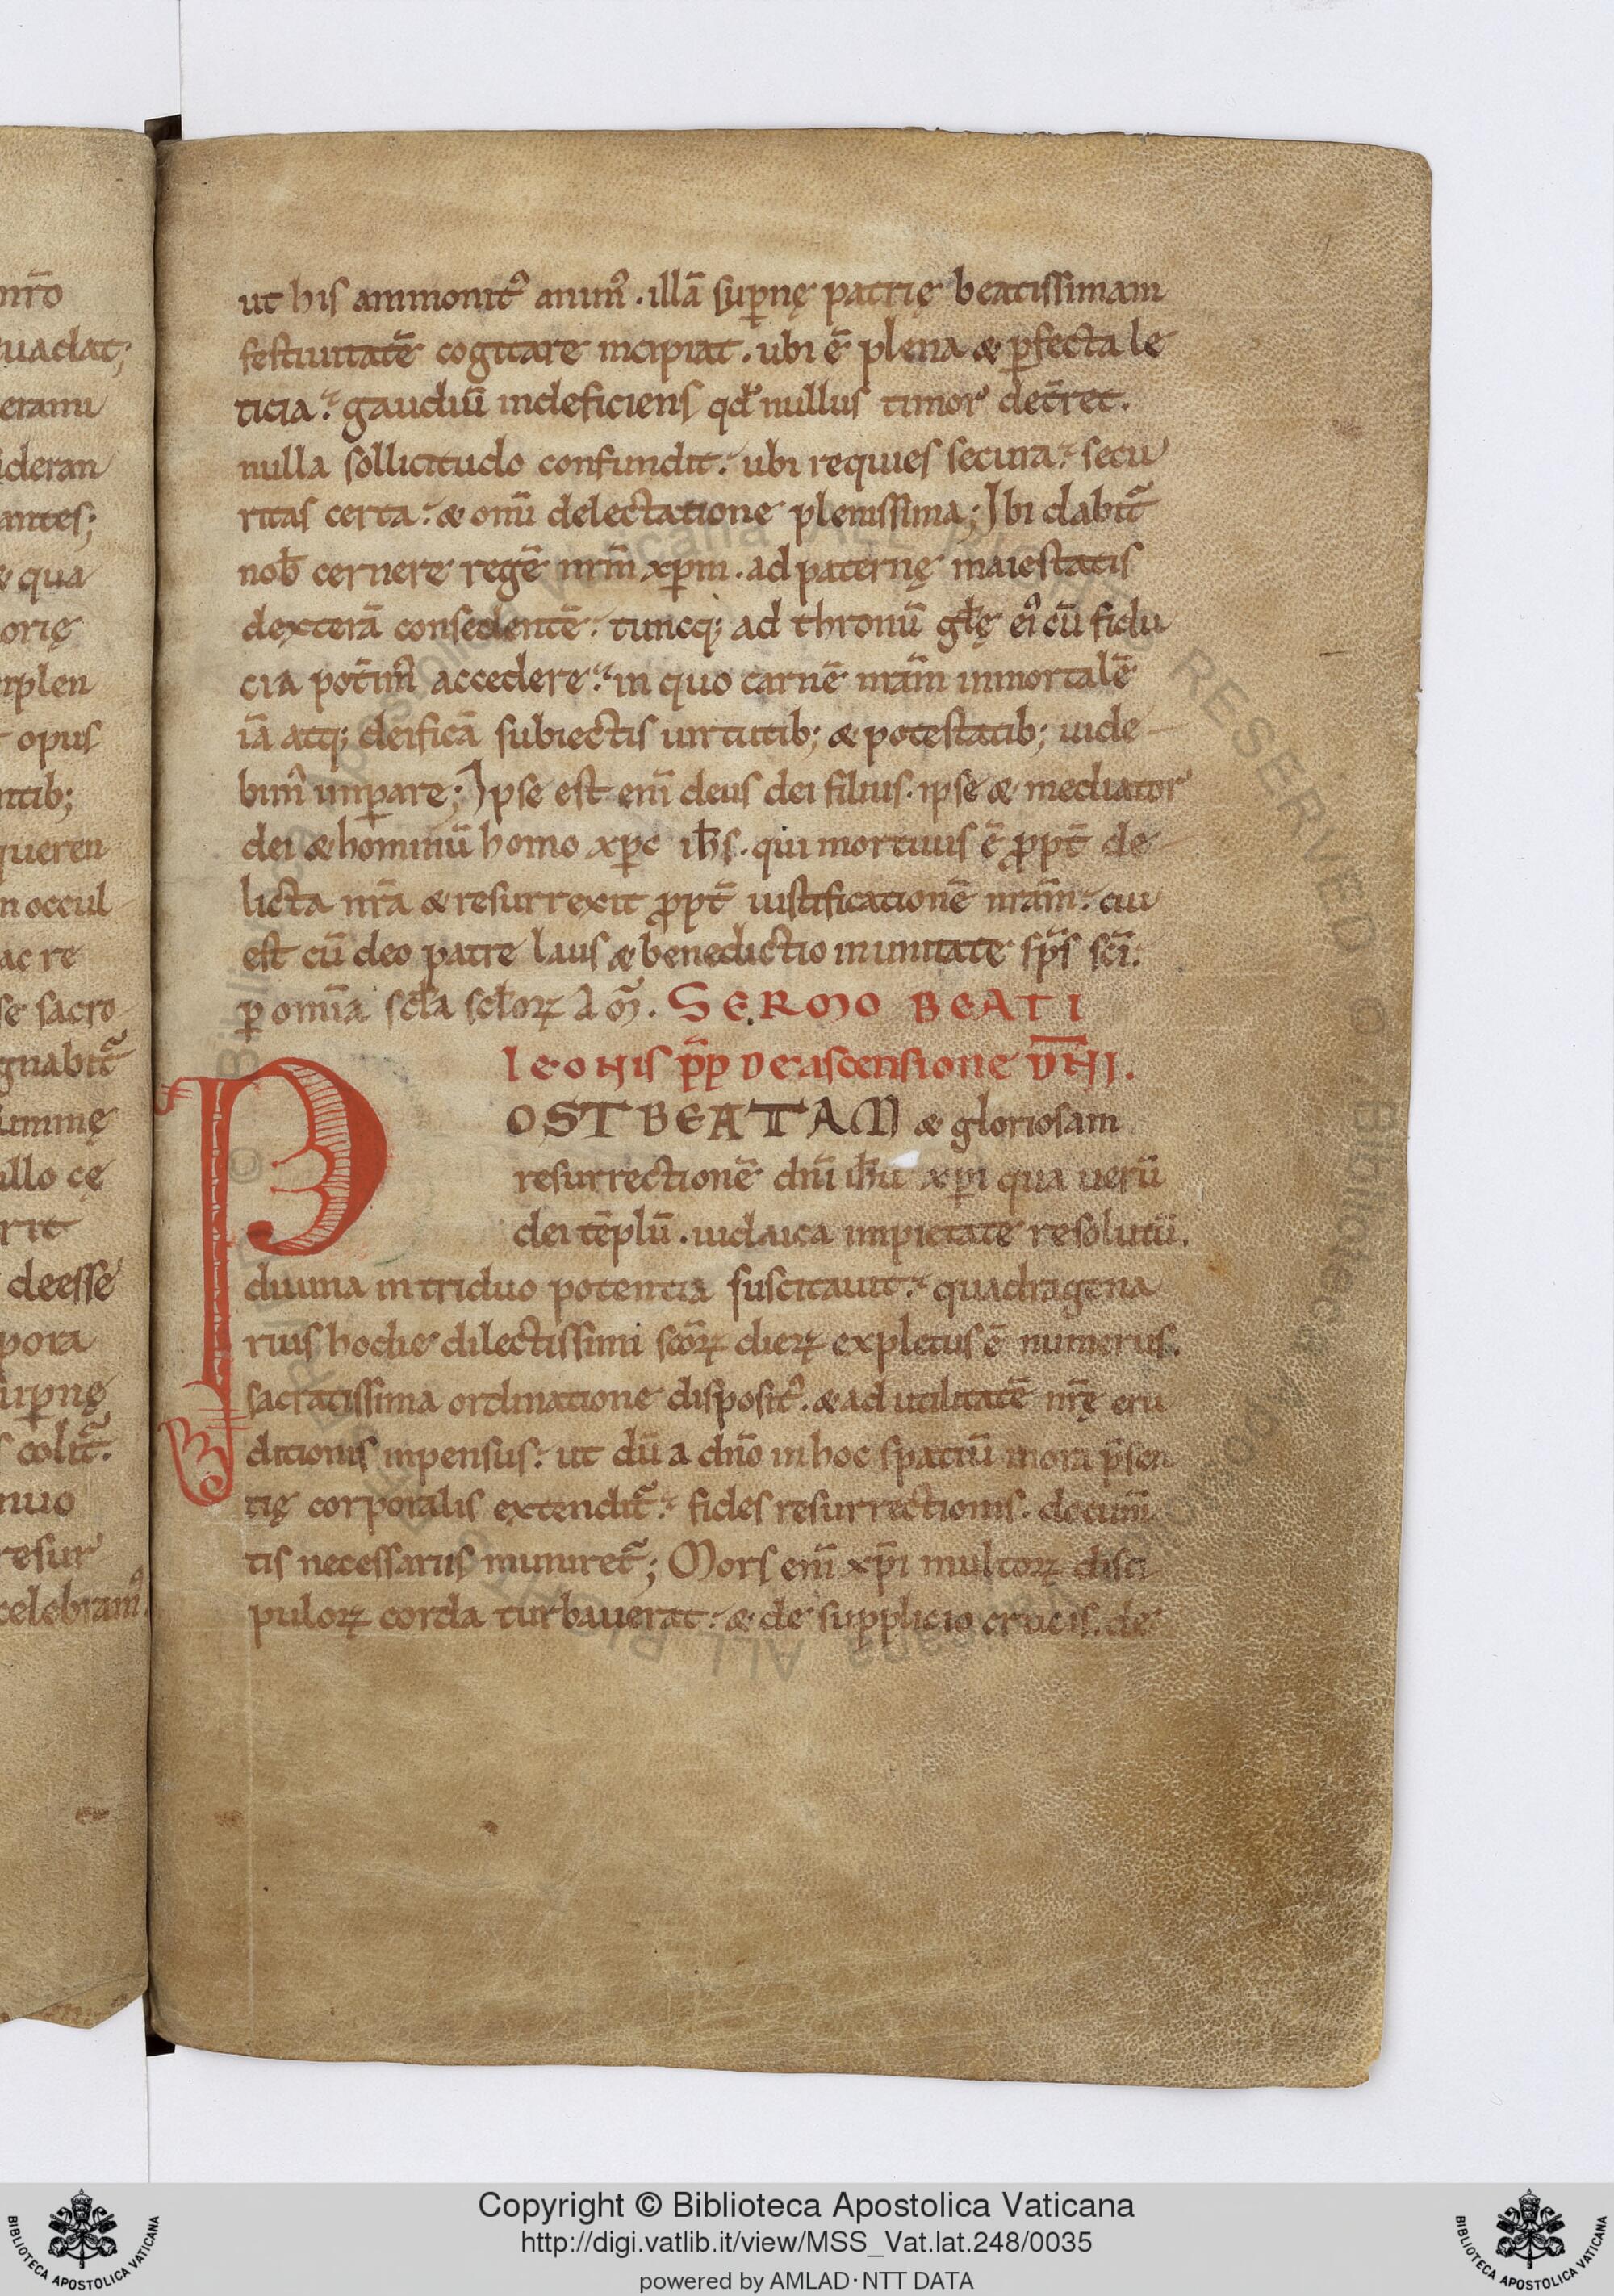 nr̄o
uadat;
eranu
ideran
antes;
& qua
orię
nplen
opus
ntib;
queren
n occul
ac re
se sacro
gnabit᷒
ummę
ullo cę
rit
deesse
pora
up̱nę
colit᷒.
nuo
resur
celebram᷒
ut his ammonit᷒ anim᷒. illā sup̱nę patrię beatissimam
festiuitatē cogitare incipiat. ubi ē plena & p̱fecta le
ticia. gaudiū indeficiens qđ nullus timor det̄ret.
nulla sollicitudo confundit. ubi requies secura. secu
ritas certa. & omī delectatione plenissima; Ibi dabit᷒
nob̄ cernere regē nr̄m xp̄m. ad paternę maiestatis
dexterā consedentē. tuncq; ad thronū gl̄ę ei᷒ cū fidu
cia pot̄im᷒ accedere. in quo carnē nr̄am inmortalē
iā atq; deificā subiectis uirtutib; & potestatib; uide
bim᷒ imp̱are; Ipse est enī deus dei filius. ipse & mediator
dei & hominū homo xp̄c ih̄s. qui mortuus ē ꝓpt̄ de
licta nr̄a & resurrexit ꝓpt̄ iustificationē nr̄am. cui
est cū deo patre laus & benedictio in unitate sp̄s sc̄i.
ꝑ omīa scl̄a scl̄oꝝ Am̄. SERMO BEATI
LEONIS p̄p DE ascensione D̄NI.
POST BEATAM & gloriosam
resurrectionē dn̄i ih̄u xp̄i qua uerū
dei tēplū. iudaica impietate resolutū.
diuina in triduo potentia suscitauit. quadragena
rius hodie dilectissimi sc̄oꝝ dieꝝ expletus ē numerus.
sacratissima ordinatione disposit᷒. & ad utilitatē nr̄ę eru
ditionis inpensus. ut dū a dn̄o in hoc spatiū mora p̄sen
tię corporalis extendit᷒. fides resurrectionis. docum̄
tis necessariis muniret᷒; Mors enī xp̄i multoꝝ disci
puloꝝ corda turbauerat. & de supplicio crucis. de
Copyright © Biblioteca Apostolica Vaticana
http://digi.vatlib.it/view/MSS_Vat.lat.248/0035
powered by AMLAD·NTT DATA
BIBLIOTECA APOSTOLICA VATICANA
BIBLIOTECA APOSTOLICA VATICANA